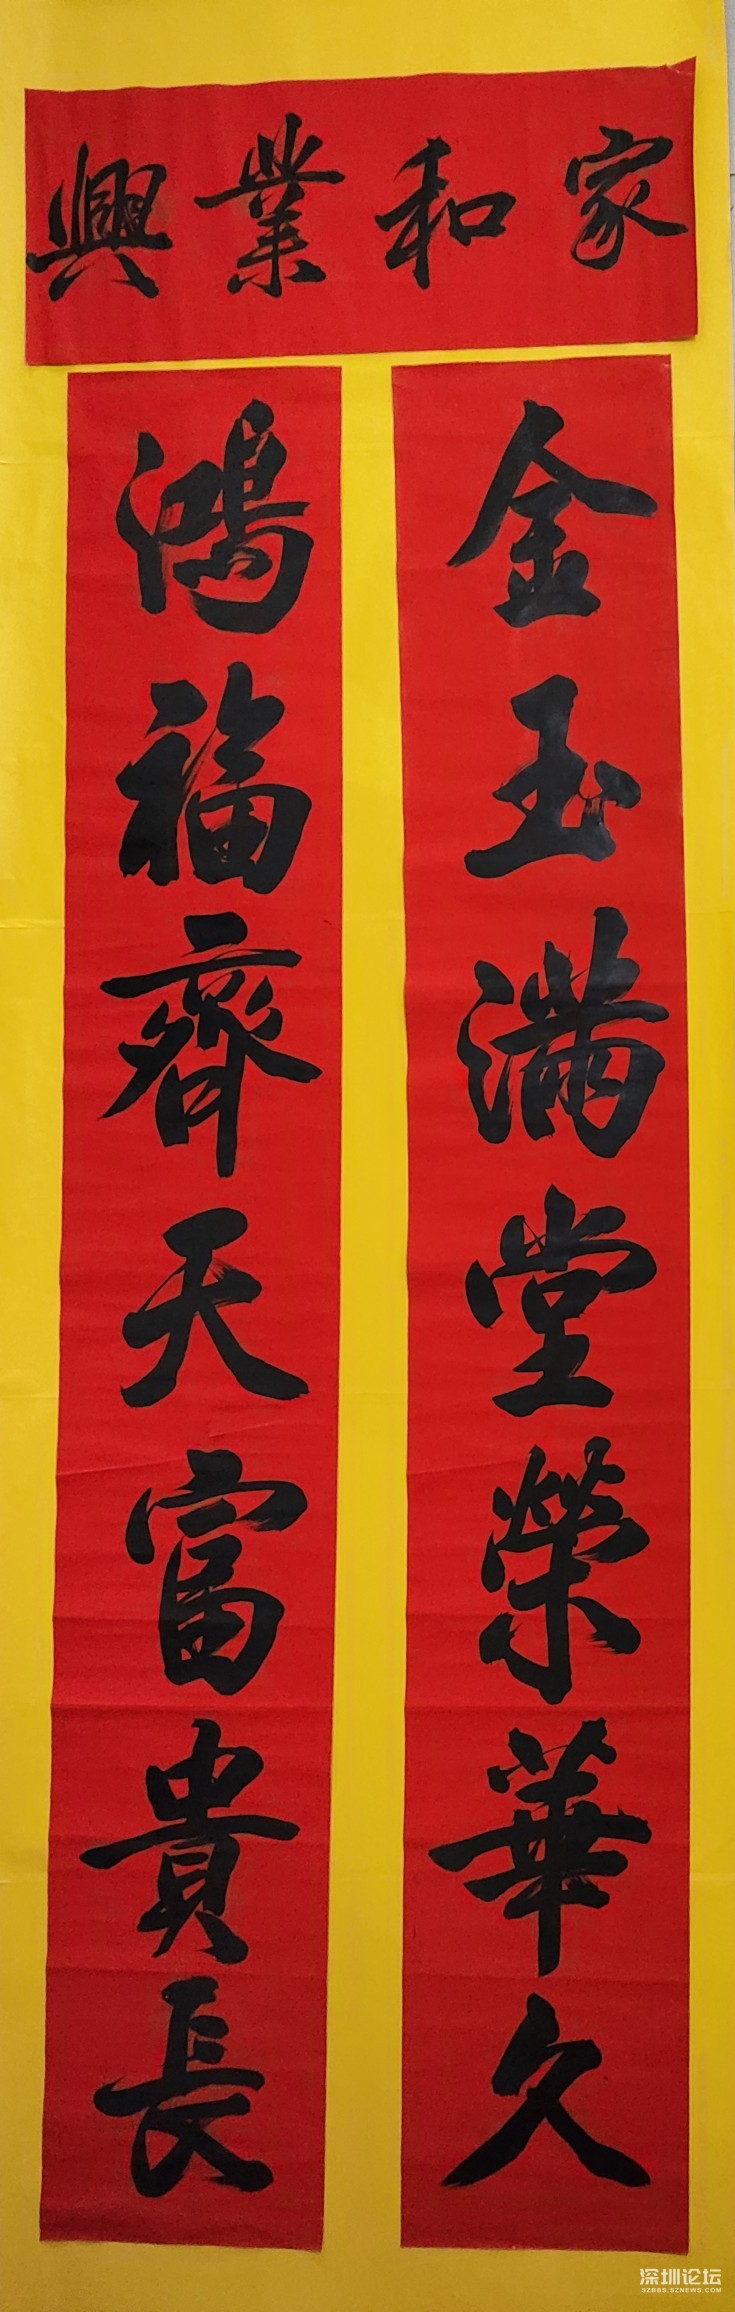 家和業興
金玉满堂榮華久
鴻福齊天富貴長
深圳论坛
SZBBS.SZNEWS.COM